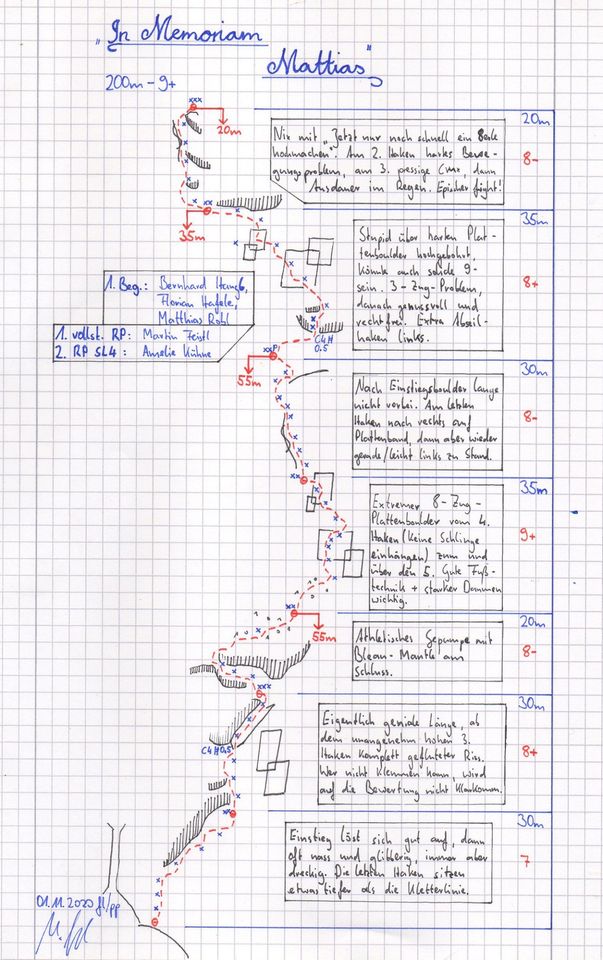 "In Memoriam
Mattias"
200m - 9+
20m
20m
8-
Nix mit "Jetzt nur noch schnell ein Seile
hochmachen". Am 2. Haken hartes Bewe-
gungsproblem, am 3. pressige Crux, dann
Ausdauer im Regen. Epischer fight!
35m
35m
8+
Stupid über harten Plat-
tenboulder hochgebohrt,
könnte auch solide 9-
sein. 3-Zug-Problem,
danach genussvoll und
rechtfrei. Extra Abseil-
haken links.
1. Beg.: Bernhard
Florian Hafele,
Matthias Robl
1. vollst. RP: Martin Feistl
2. RP SL4: Amelie Kühne
C4#
0.5
55m
30m
8-
Nach Einstiegsboulder Lange
nicht vorbei. Am letzten
Haken nach rechts auf
Plattenband, dann aber wieder
gerade/leicht links zu Stand.
35m
9+
Extremer 8-Zug-
Plattenboulder vom 4.
Haken (keine Schlinge
einhängen) zum und
über den 5. Gute Fuß-
technik + starker Daumen
wichtig.
55m
20m
8-
Athletisches Gepumpe mit
Bleau-Mantle am
Schluss.
30m
8+
Eigentlich geniale Länge, ab
dem unangenehm hohen 3.
Haken komplett gefluteter Riss.
Wer nicht klemmen kann, wird
auf die Bewertung nicht klarkommen.
C4#0,5
30m
7
Einstieg löst sich gut auf, dann
oft nass und glibberig, immer aber
dreckig. Die letzten Haken sitzen
etwas tiefer als die Kletterlinie.
01.11.2020 fl/pp